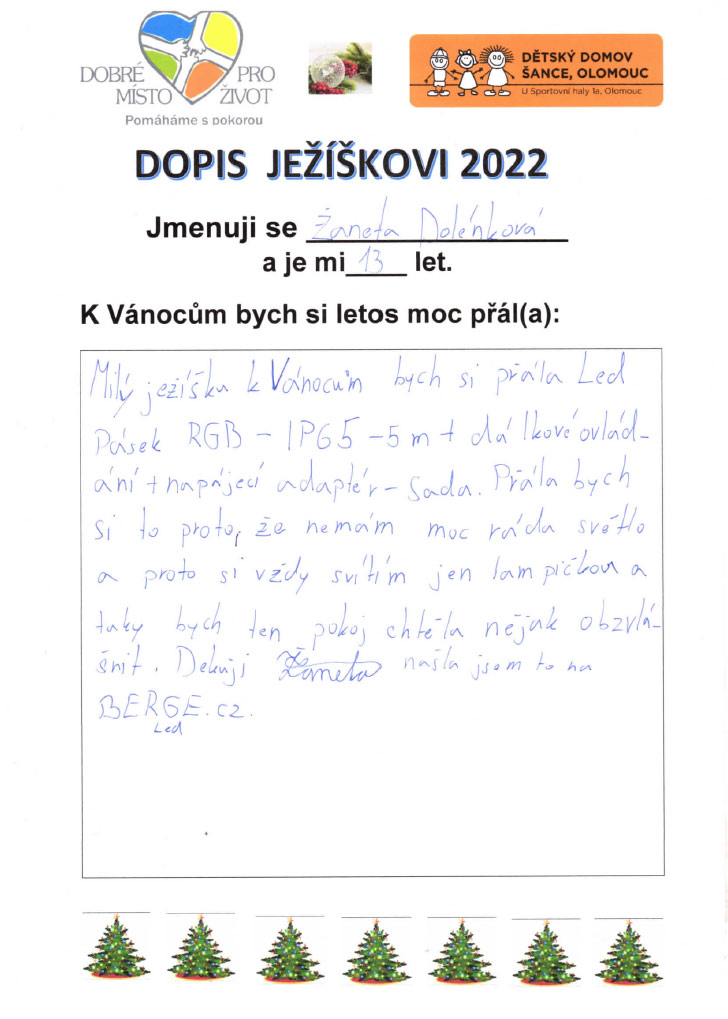 DOBRÉ PRO
MÍSTO ŽIVOT
Pomáháme s pokorou
DĚTSKÝ DOMOV
ŠANCE, OLOMOUC
U Sportovní haly 1a, Olomouc
DOPIS JEŽÍŠKOVI 2022
Jmenuji se Žaneta Dolénková
a je mi 13 let.
K Vánocům bych si letos moc přál(a):
Milý ježíšku k Vánocům bych si přála Led
Pásek RGB - IP65 - 5m + dálkové ovlád-
ání + napájecí adaptér - Sada. Přála bych
si to proto, že nemám moc ráda světlo
a proto si vždy svítím jen lampičkou a
taky bych ten pokoj chtěla nějak obzvlá-
šnit. Dekuji Žaneta našla jsem to na
BERGE.cz.
Led